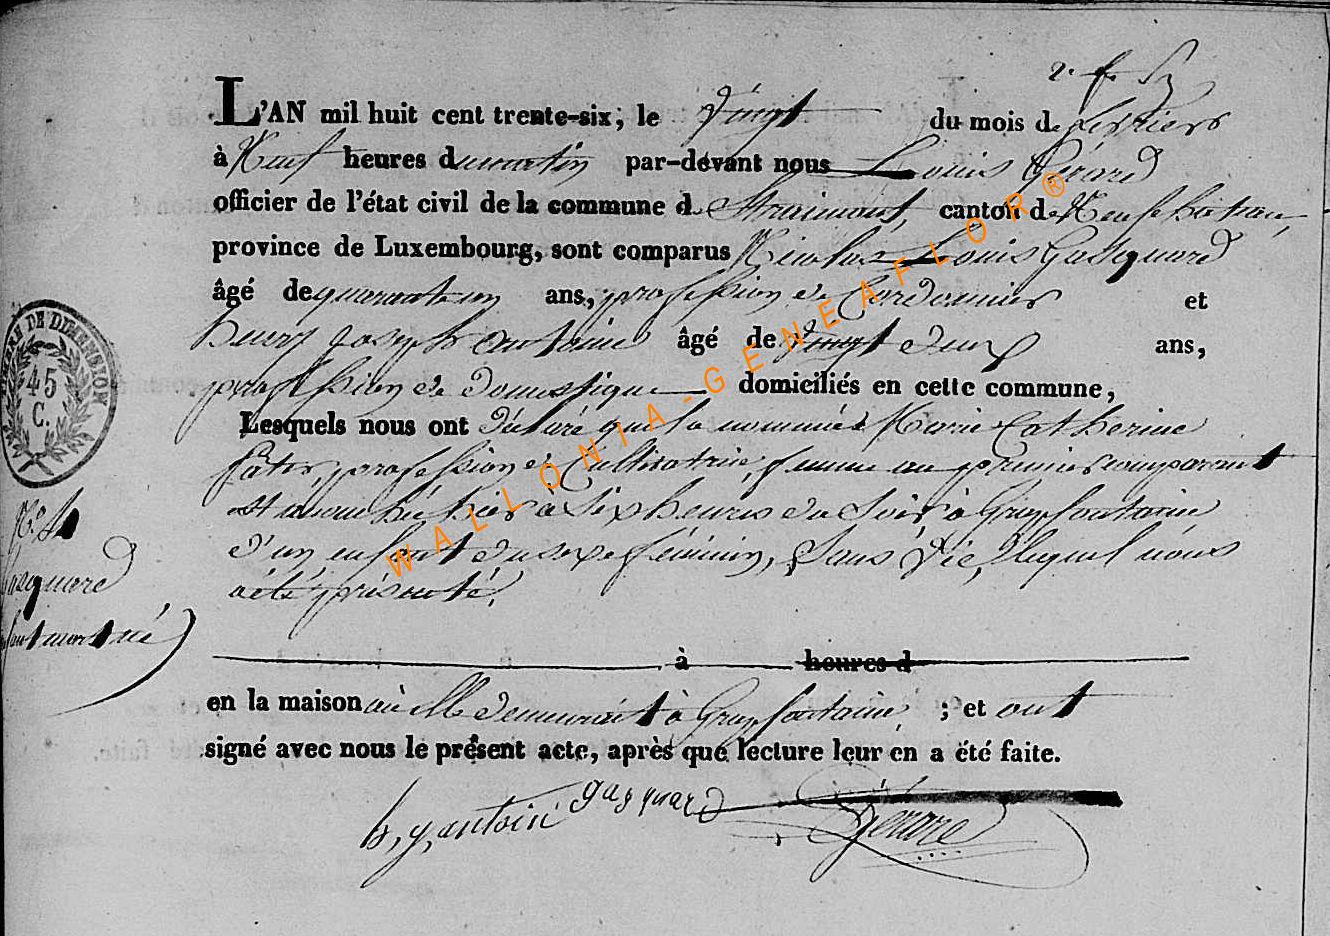 2. f. B
L'AN mil huit cent trente-six; le Vingt du mois de fevriers
à Neuf heures du matin par-devant nous Louis Gérard
officier de l'état civil de la commune de Straimont, canton de Neufchateau,
province de Luxembourg, sont comparus Nicolas Louis Gasquard
âgé de quarante un ans, profession de Cordonnier et
henry joseph antoine âgé de vingt deux ans,
profession de domestique domiciliés en cette commune,
Lesquels nous ont Déclaré que la nommée Marie Catherine
profession de Cultivatrice, femme au premier comparant
est accouchée hier à Six heures du Soir à Grapfontaine
d'un enfant du sexe féminin, Sans Vie, lequel nous
a été présenté.
à heures d
en la maison où elle demeurait à Grapfontaine ; et ont
signé avec nous le présent acte, après que lecture leur en a été faite.
h, j, antoine gasquard Gérard
TIMBRE DE DIMENSION
45
C.
N°
Gasquard
enfant mort né
WALLONIA-GENEAFLOR®